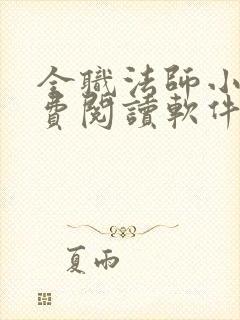 全職法師小
費閱讀軟件
夏雨